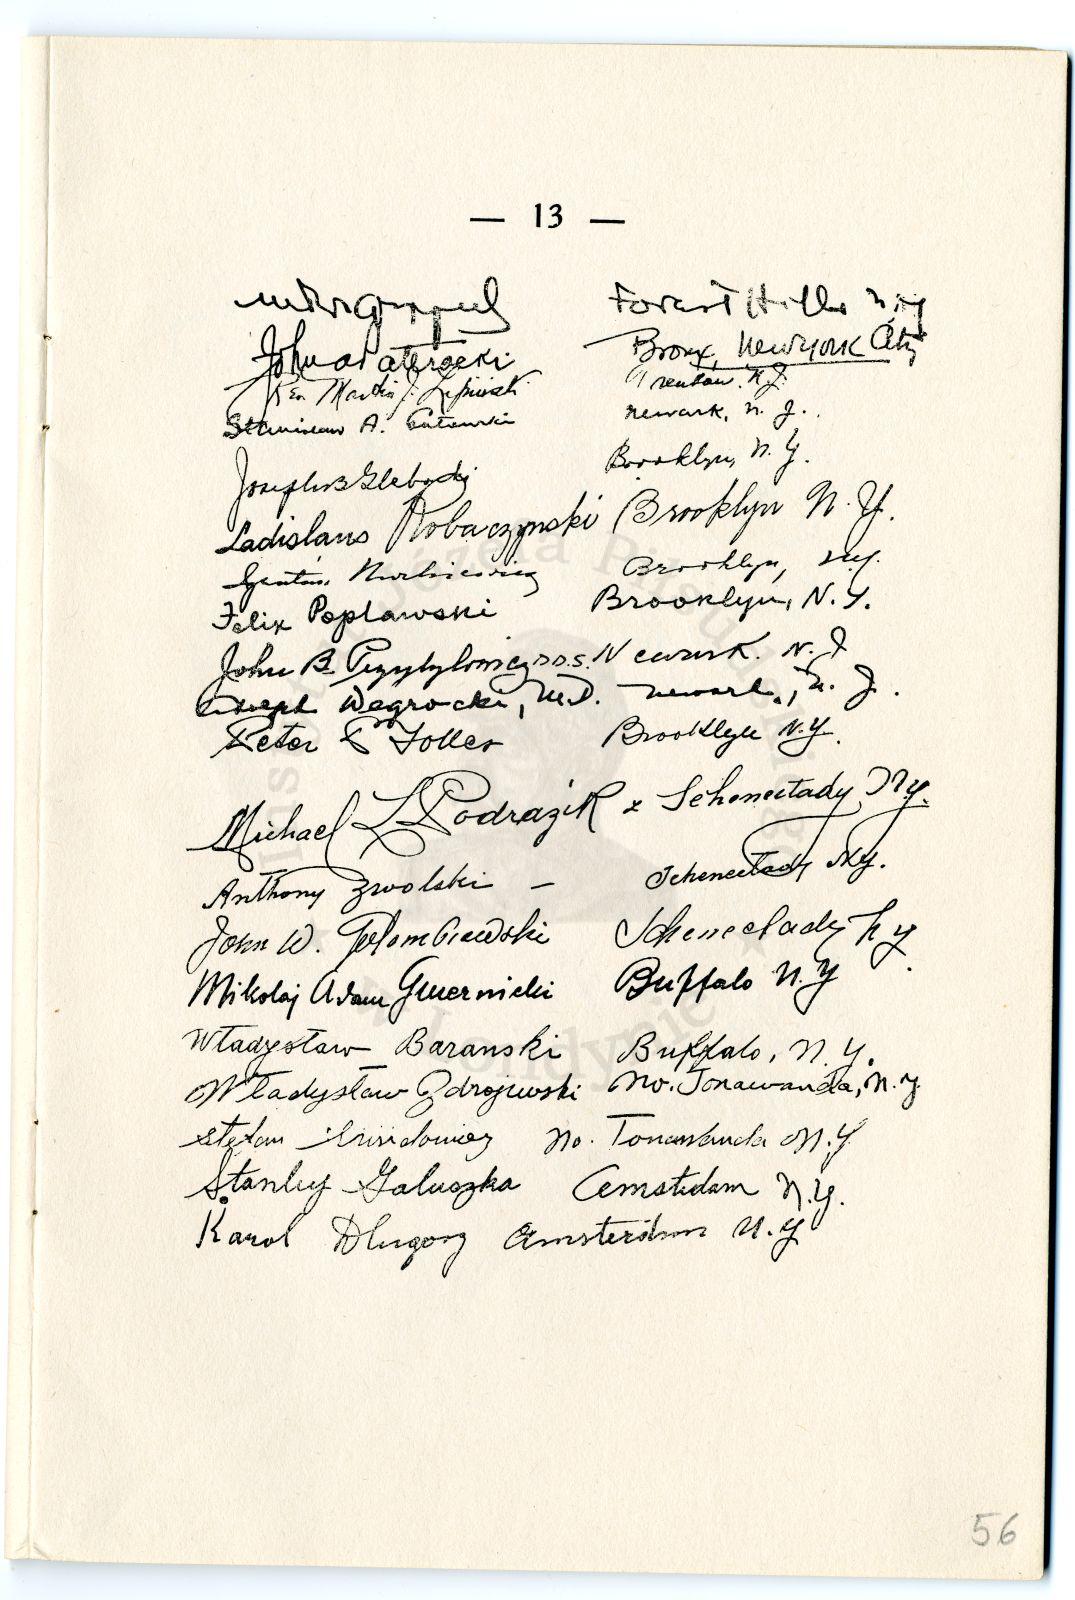 — 13 —
Forest Hills N.Y.
John A Pateracki Bronx, New York City
Rev. Martin J. Lipinski Trenton. N.J.
Stanislaw A. Gutowski Newark, N. J.
Joseph B Glebocki Brooklyn, N. Y.
Ladislaus Robaczynski Brooklyn N. Y.
Brooklyn, N.Y.
Felix Poplawski Brooklyn, N.Y.
John B. Przybylowicz D.D.S. Newark. N. J
Joseph Wegrocki, M.D. Newark, N. J.
Peter P Brooklyn N.Y.
Michael L Podrazik Schenectady, N.Y.
Anthony Zwolski — Schenectady N.Y.
John W. Golembiewski Schenectady N Y.
Mikołaj Adam Buffalo N. Y
Władysław Baranski Buffalo, N. Y.
Władysław Zdrojewski No. Tonawanda, N.Y.
Stefan No. Tonawanda N.Y
Stanley Galuszka Amsterdam N.Y.
Karol Dlugosz Amsterdam N.Y
56